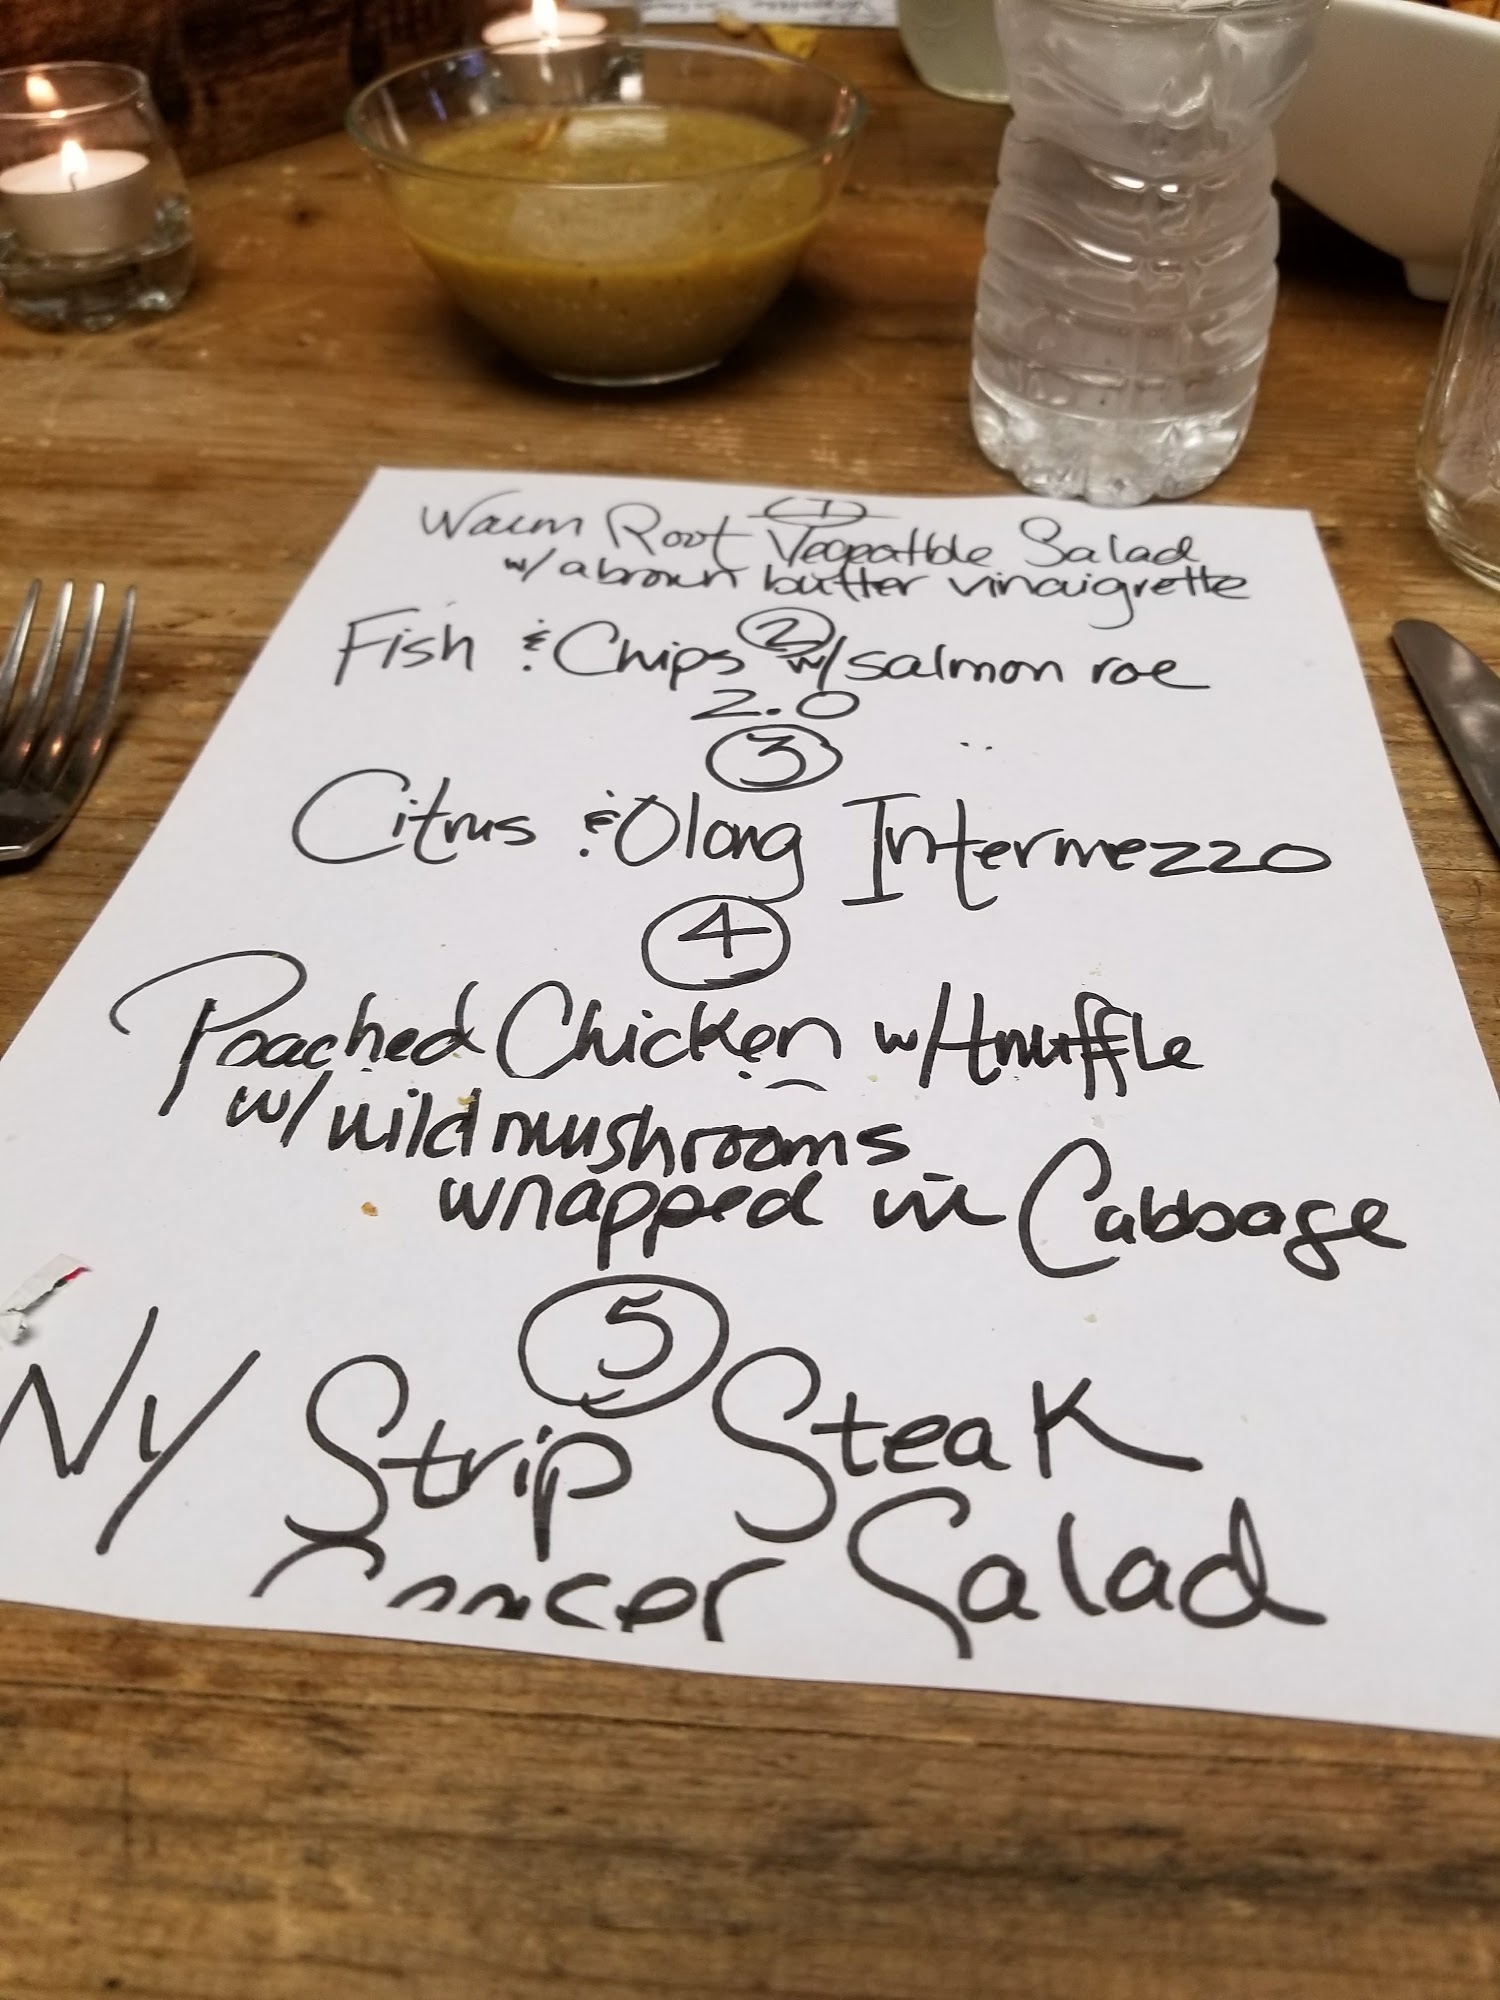 1
Warm Root Vegeatble Salad
w/ a brown butter vinaigrette
2
Fish & Chips w/ salmon roe
2.0
3
Citrus & Olong Intermezzo
4
Poached Chicken w/ truffle
w/ wild mushrooms
wrapped in Cabbage
5
NY Strip Steak
Salad